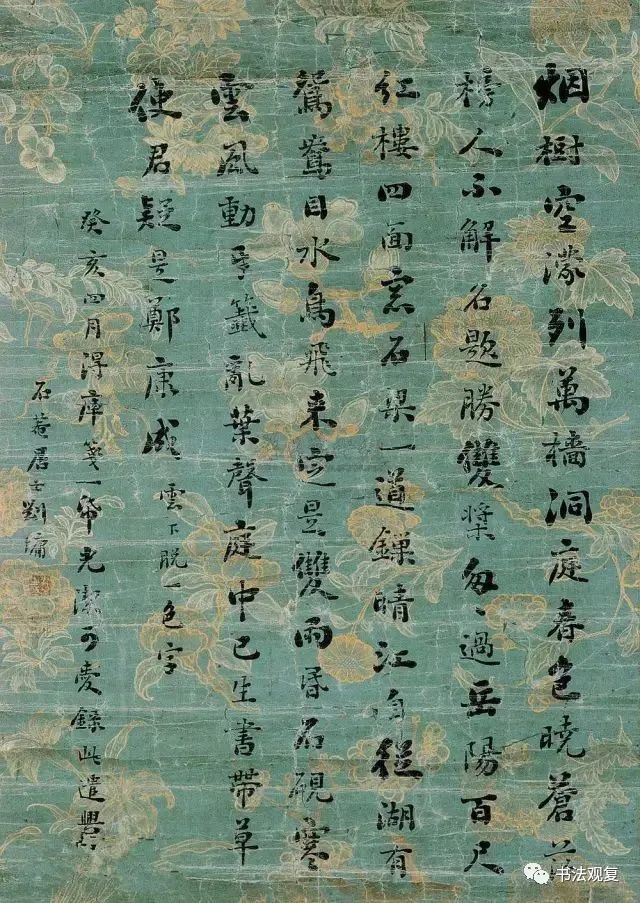 烟樹空濛列萬檣洞庭春色曉蒼
榜人不解名題勝雙槳匆〻過岳陽百尺
紅樓四面窓石梁一道鏁晴江自從湖有
鴛鴦目水鳥飛來定是雙雨昏石硯寒
雲風動牙籤亂葉聲庭中已生書帶草
使君疑是鄭康成 雲下脫一色字
癸亥四月得庫箋一帋光潔可愛錄此遣興
石菴居士劉墉
书法观复